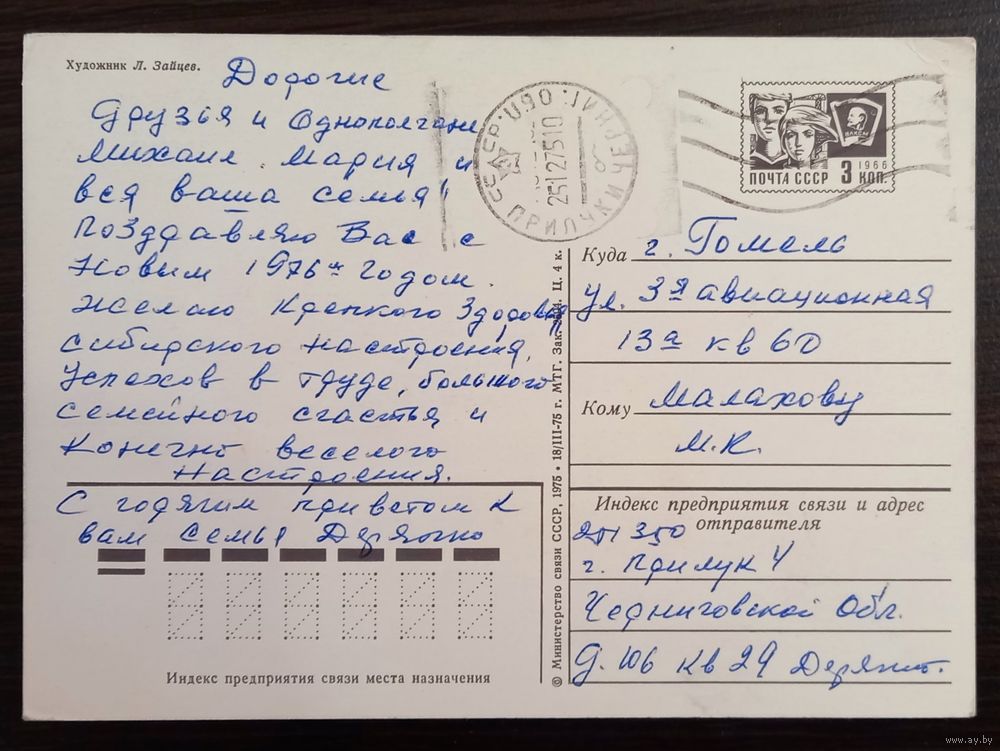 Художник Л. Зайцев.
Дорогие
друзья и однополчане
Михаил, Мария и
вся ваша семья!
Поздравляю Вас с
Новым 1976 м годом.
Желаю крепкого здоровья,
сибирского настроения,
успехов в труде, большого
семейного счастья и
конечно веселого
настроения.
С горячим приветом к
вам семья
Индекс предприятия связи места назначения
© Министерство связи СССР, 1975 • 18/III-75 г. МТГ. Зак. Ц. 4 к.
СССР
25127510
ПРИЛУКИ
ВЛКСМ
1966
ПОЧТА СССР 3 КОП.
Куда г. Гомель
ул. 3я авиационная
13а кв 60
Кому Малахову
М.К.
Индекс предприятия связи и адрес
отправителя
г. Прилук 4
Черниговской обл.
д. 106 кв 29
www.ay.by